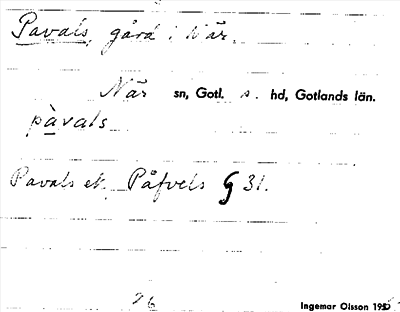 Pavals, gård i När.
När sn, Gotl. s. hd, Gotlands län.
pàvals
Pavals et. Påfvels G 31.
26
Ingemar Olsson 195